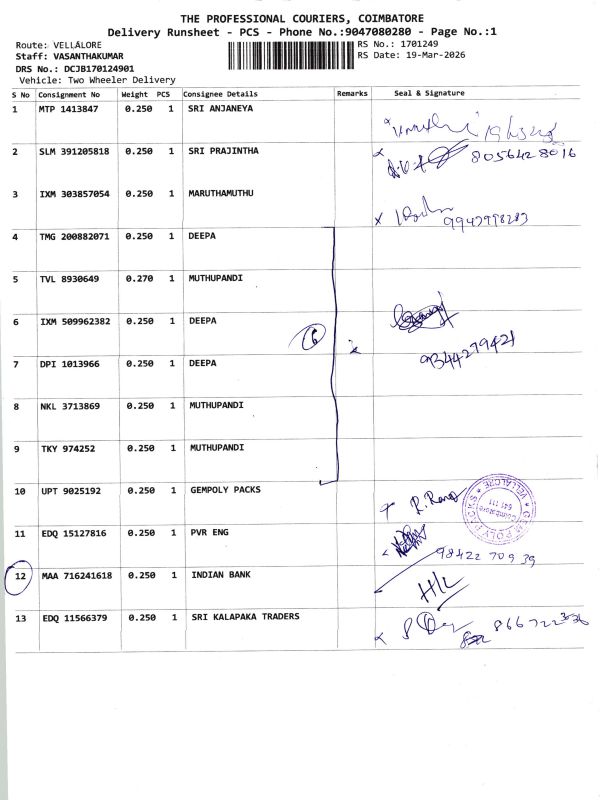 THE PROFESSIONAL COURIERS, COIMBATORE
Delivery Runsheet - PCS - Phone No.:9047080280 - Page No.:1
Route: VELLALORE
RS No.: 1701249
Staff: VASANTHAKUMAR
RS Date: 19-Mar-2026
DRS No.: DCJB170124901
Vehicle: Two Wheeler Delivery
S No Consignment No Weight PCS Consignee Details Remarks Seal & Signature
1 MTP 1413847 0.250 1 SRI ANJANEYA
2 SLM 391205818 0.250 1 SRI PRAJINTHA
8056428016
3 IXM 303857054 0.250 1 MARUTHAMUTHU
9947998283
4 TMG 200882071 0.250 1 DEEPA
5 TVL 8930649 0.270 1 MUTHUPANDI
6 IXM 509962382 0.250 1 DEEPA
6
9344279421
7 DPI 1013966 0.250 1 DEEPA
8 NKL 3713869 0.250 1 MUTHUPANDI
9 TKY 974252 0.250 1 MUTHUPANDI
10 UPT 9025192 0.250 1 GEMPOLY PACKS
VELLALORE
11 EDQ 15127816 0.250 1 PVR ENG
98422 70939
12 MAA 716241618 0.250 1 INDIAN BANK
H/L
13 EDQ 11566379 0.250 1 SRI KALAPAKA TRADERS